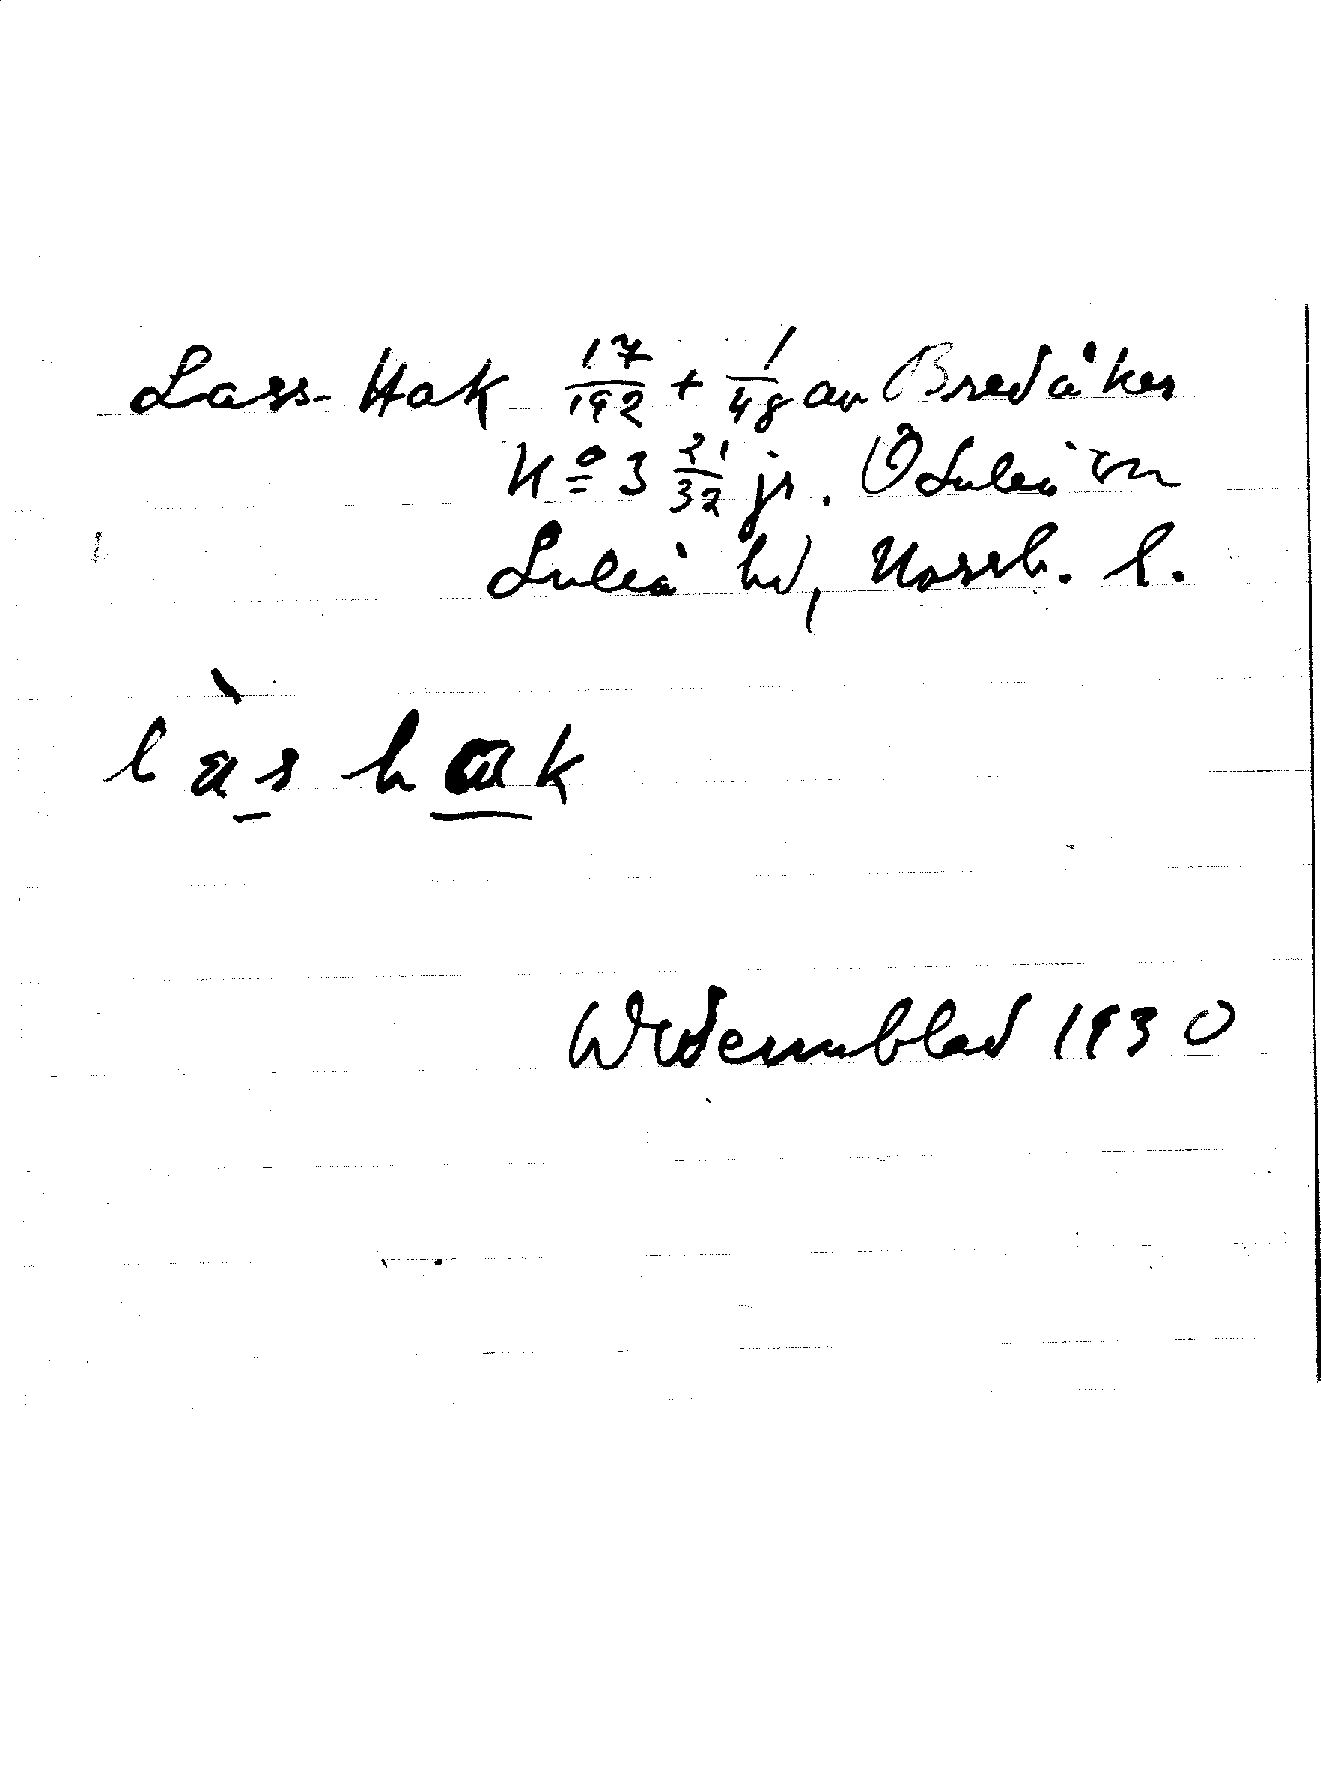 Lars-Hak 17/192 + 1/48 av Bredåker
No 3 21/32 jr. Ö Luleå sn
Luleå hd, Norrb. l.
làs hak
Widernblad 1930